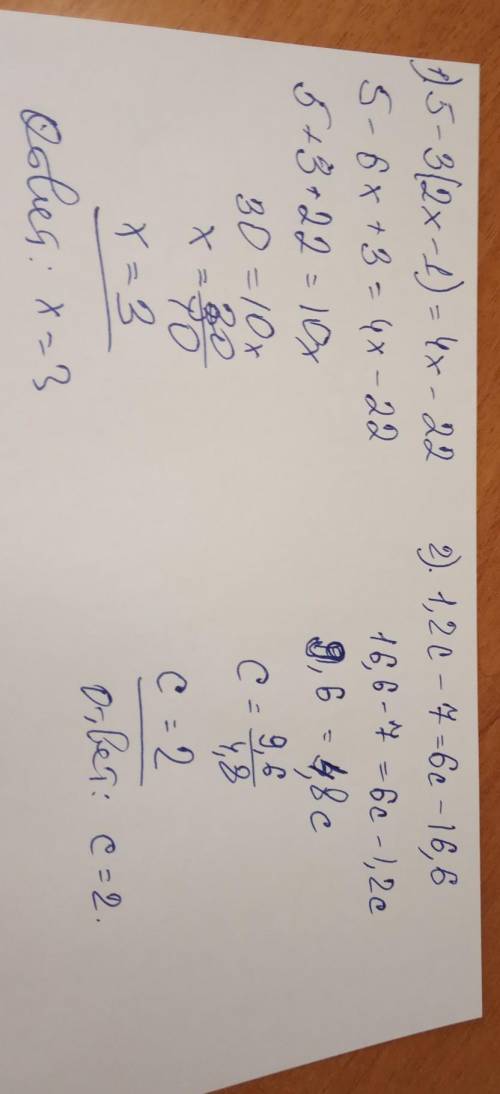 1) 5 - 3(2x - 1) = 4x - 22
5 - 6x + 3 = 4x - 22
5 + 3 + 22 = 10x
30 = 10x
x = 30/10
x = 3
Ответ: x = 3
2). 1,2c - 7 = 6c - 16,6
16,6 - 7 = 6c - 1,2c
9,6 = 4,8c
c = 9,6/4,8
c = 2
Ответ: c = 2.